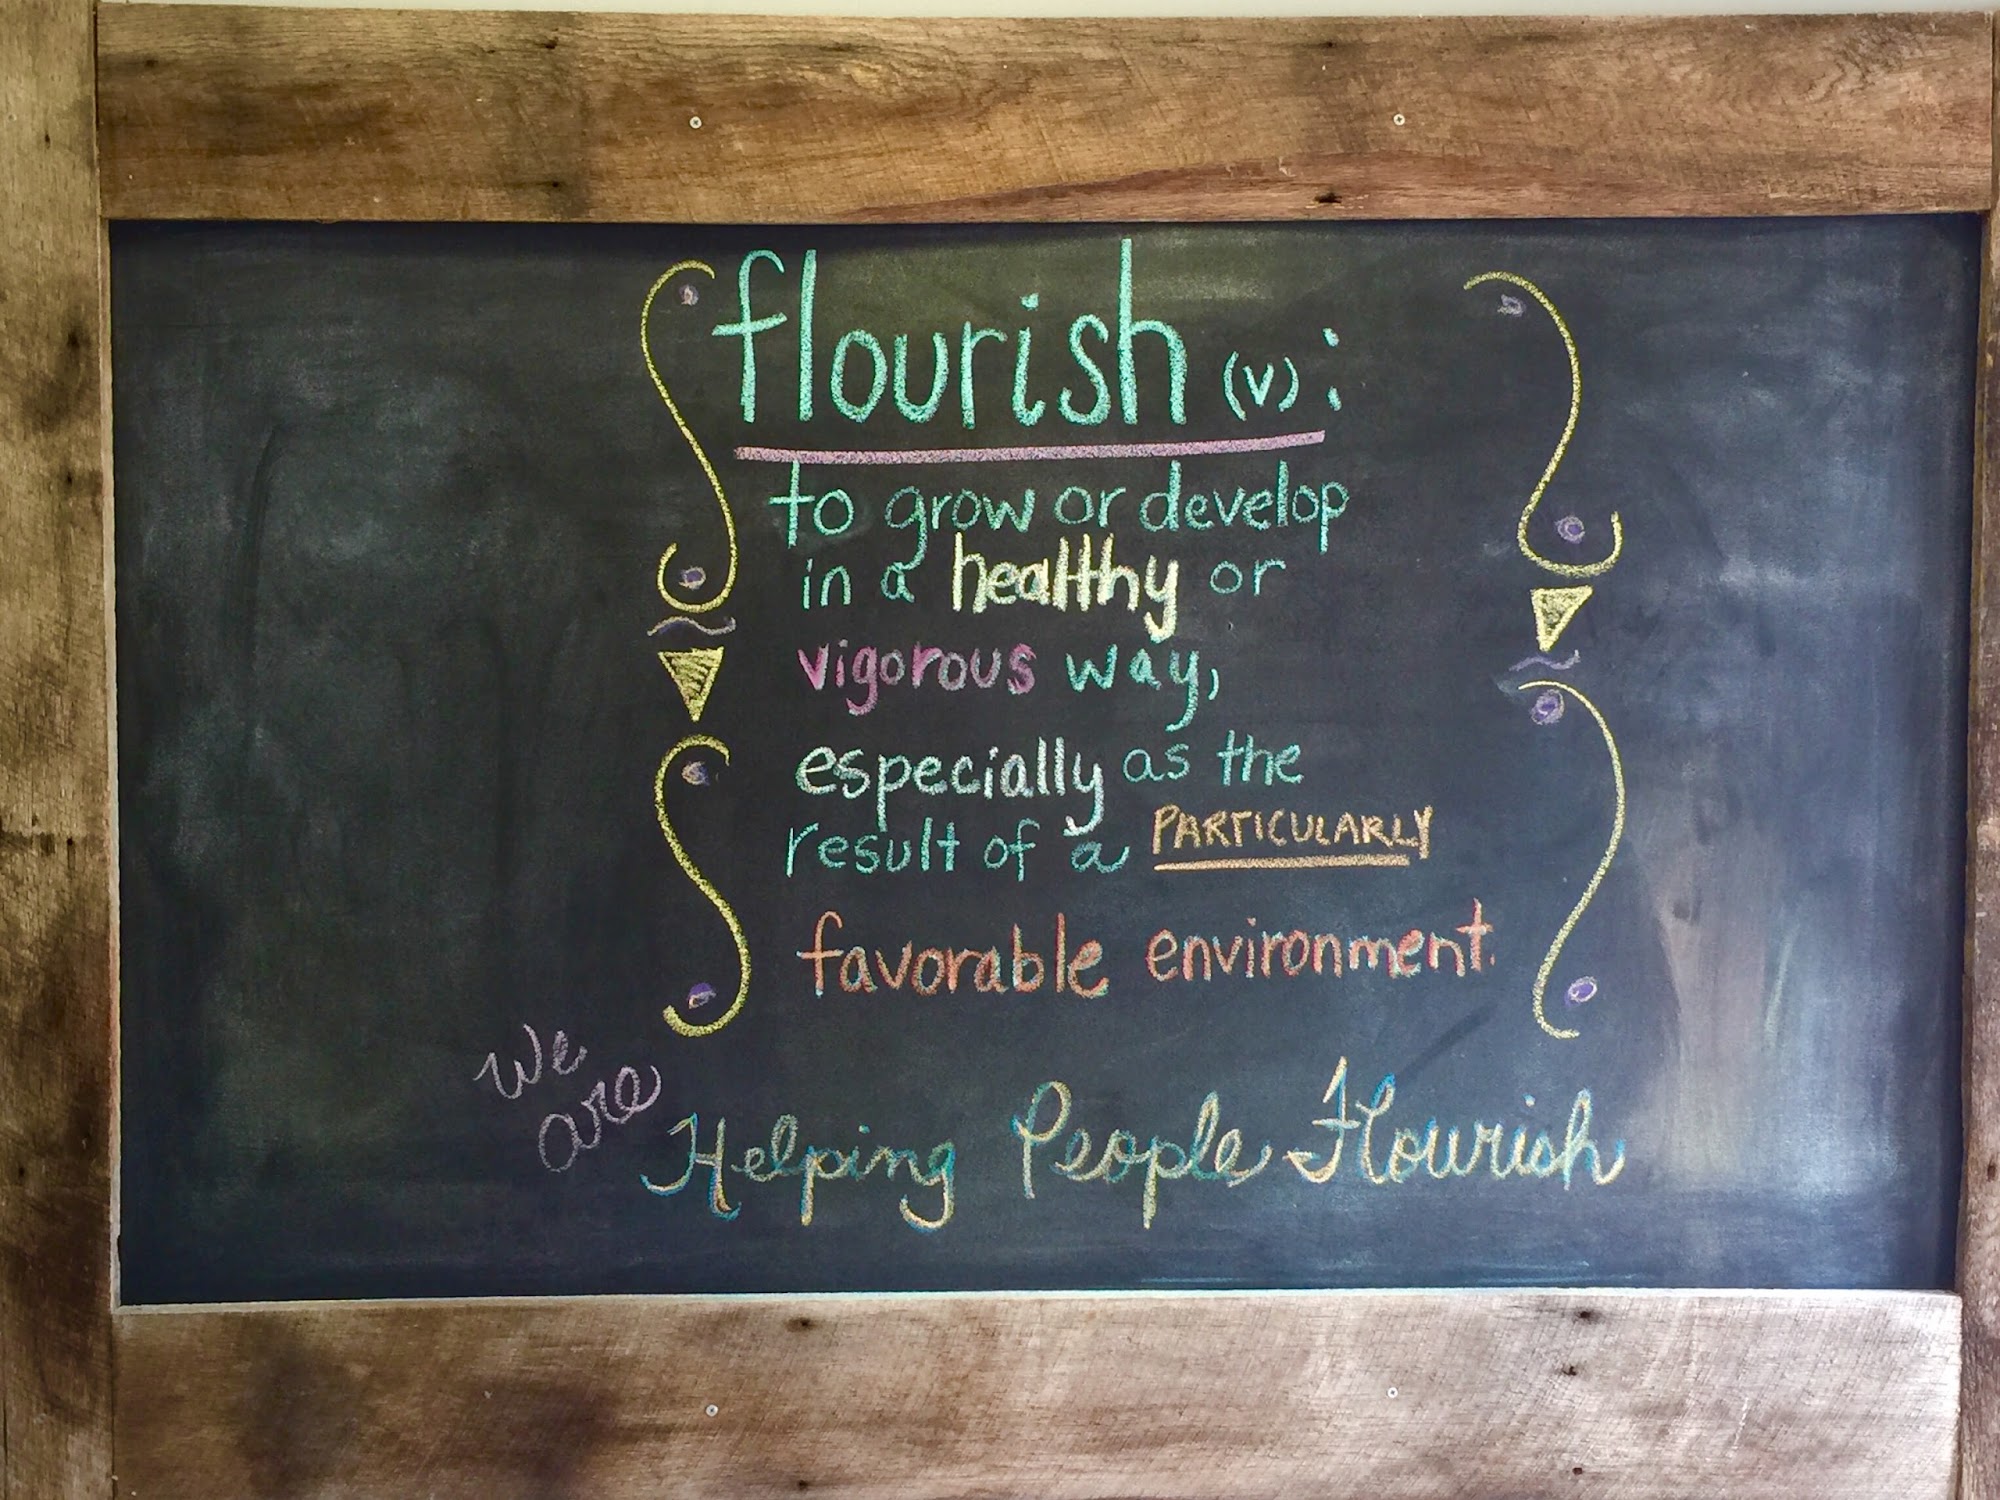 flourish (v):
to grow or develop
in a healthy or
vigorous way,
especially as the
result of a PARTICULARLY
favorable environment.
We
are
Helping People Flourish